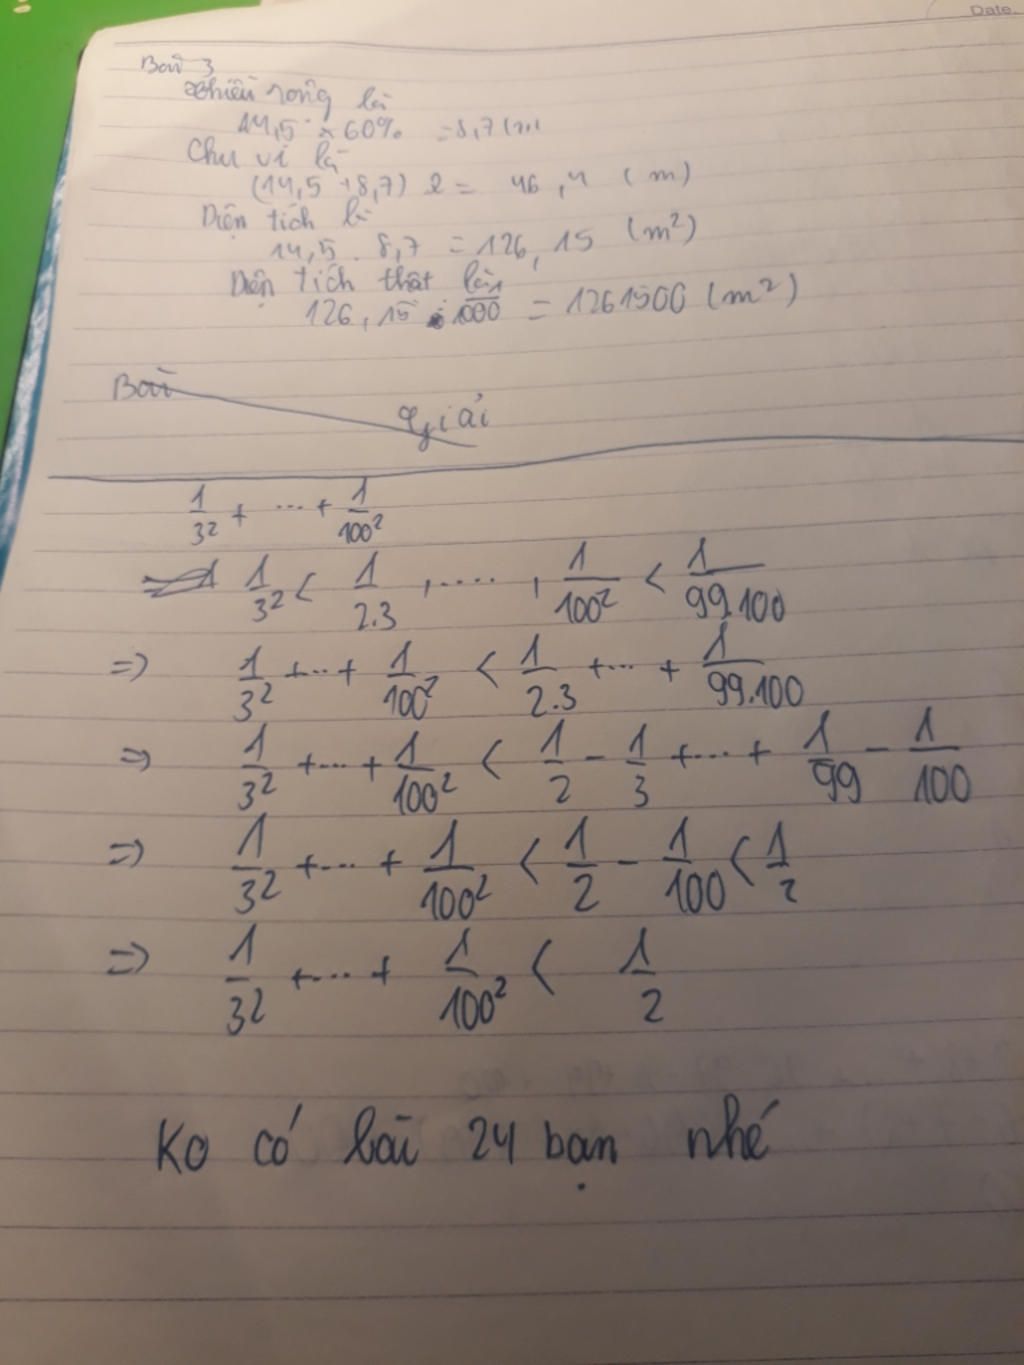 Date.
Bài 3
chiều rộng là
14,5 × 60% = 8,7 (m)
Chu vi là
(14,5 + 8,7) 2 = 46,4 (m)
Diện tích là
14,5 . 8,7 = 126,15 (m²)
Diện tích thật là
126,15 : 1/1000 = 1261500 (m²)
Bài
Giải
1/3² + ... + 1/100²
1/3² < 1/2.3 , .... , 1/100² < 1/99.100
=> 1/3² + ... + 1/100² < 1/2.3 + ... + 1/99.100
=> 1/3² + ... + 1/100² < 1/2 - 1/3 + ... + 1/99 - 1/100
=> 1/3² + ... + 1/100² < 1/2 - 1/100 < 1/2
=> 1/3² + ... + 1/100² < 1/2
Ko có bài 24 bạn nhé